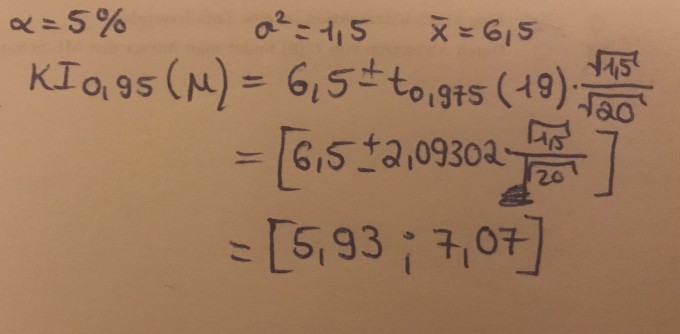 α = 5% σ² = 1,5 x̄ = 6,5
KI₀,₉₅(μ) = 6,5 ± t₀,₉₇₅(19) · √1,5/√20
= [6,5 ± 2,09302 · √1,5/√20]
= [5,93 ; 7,07]